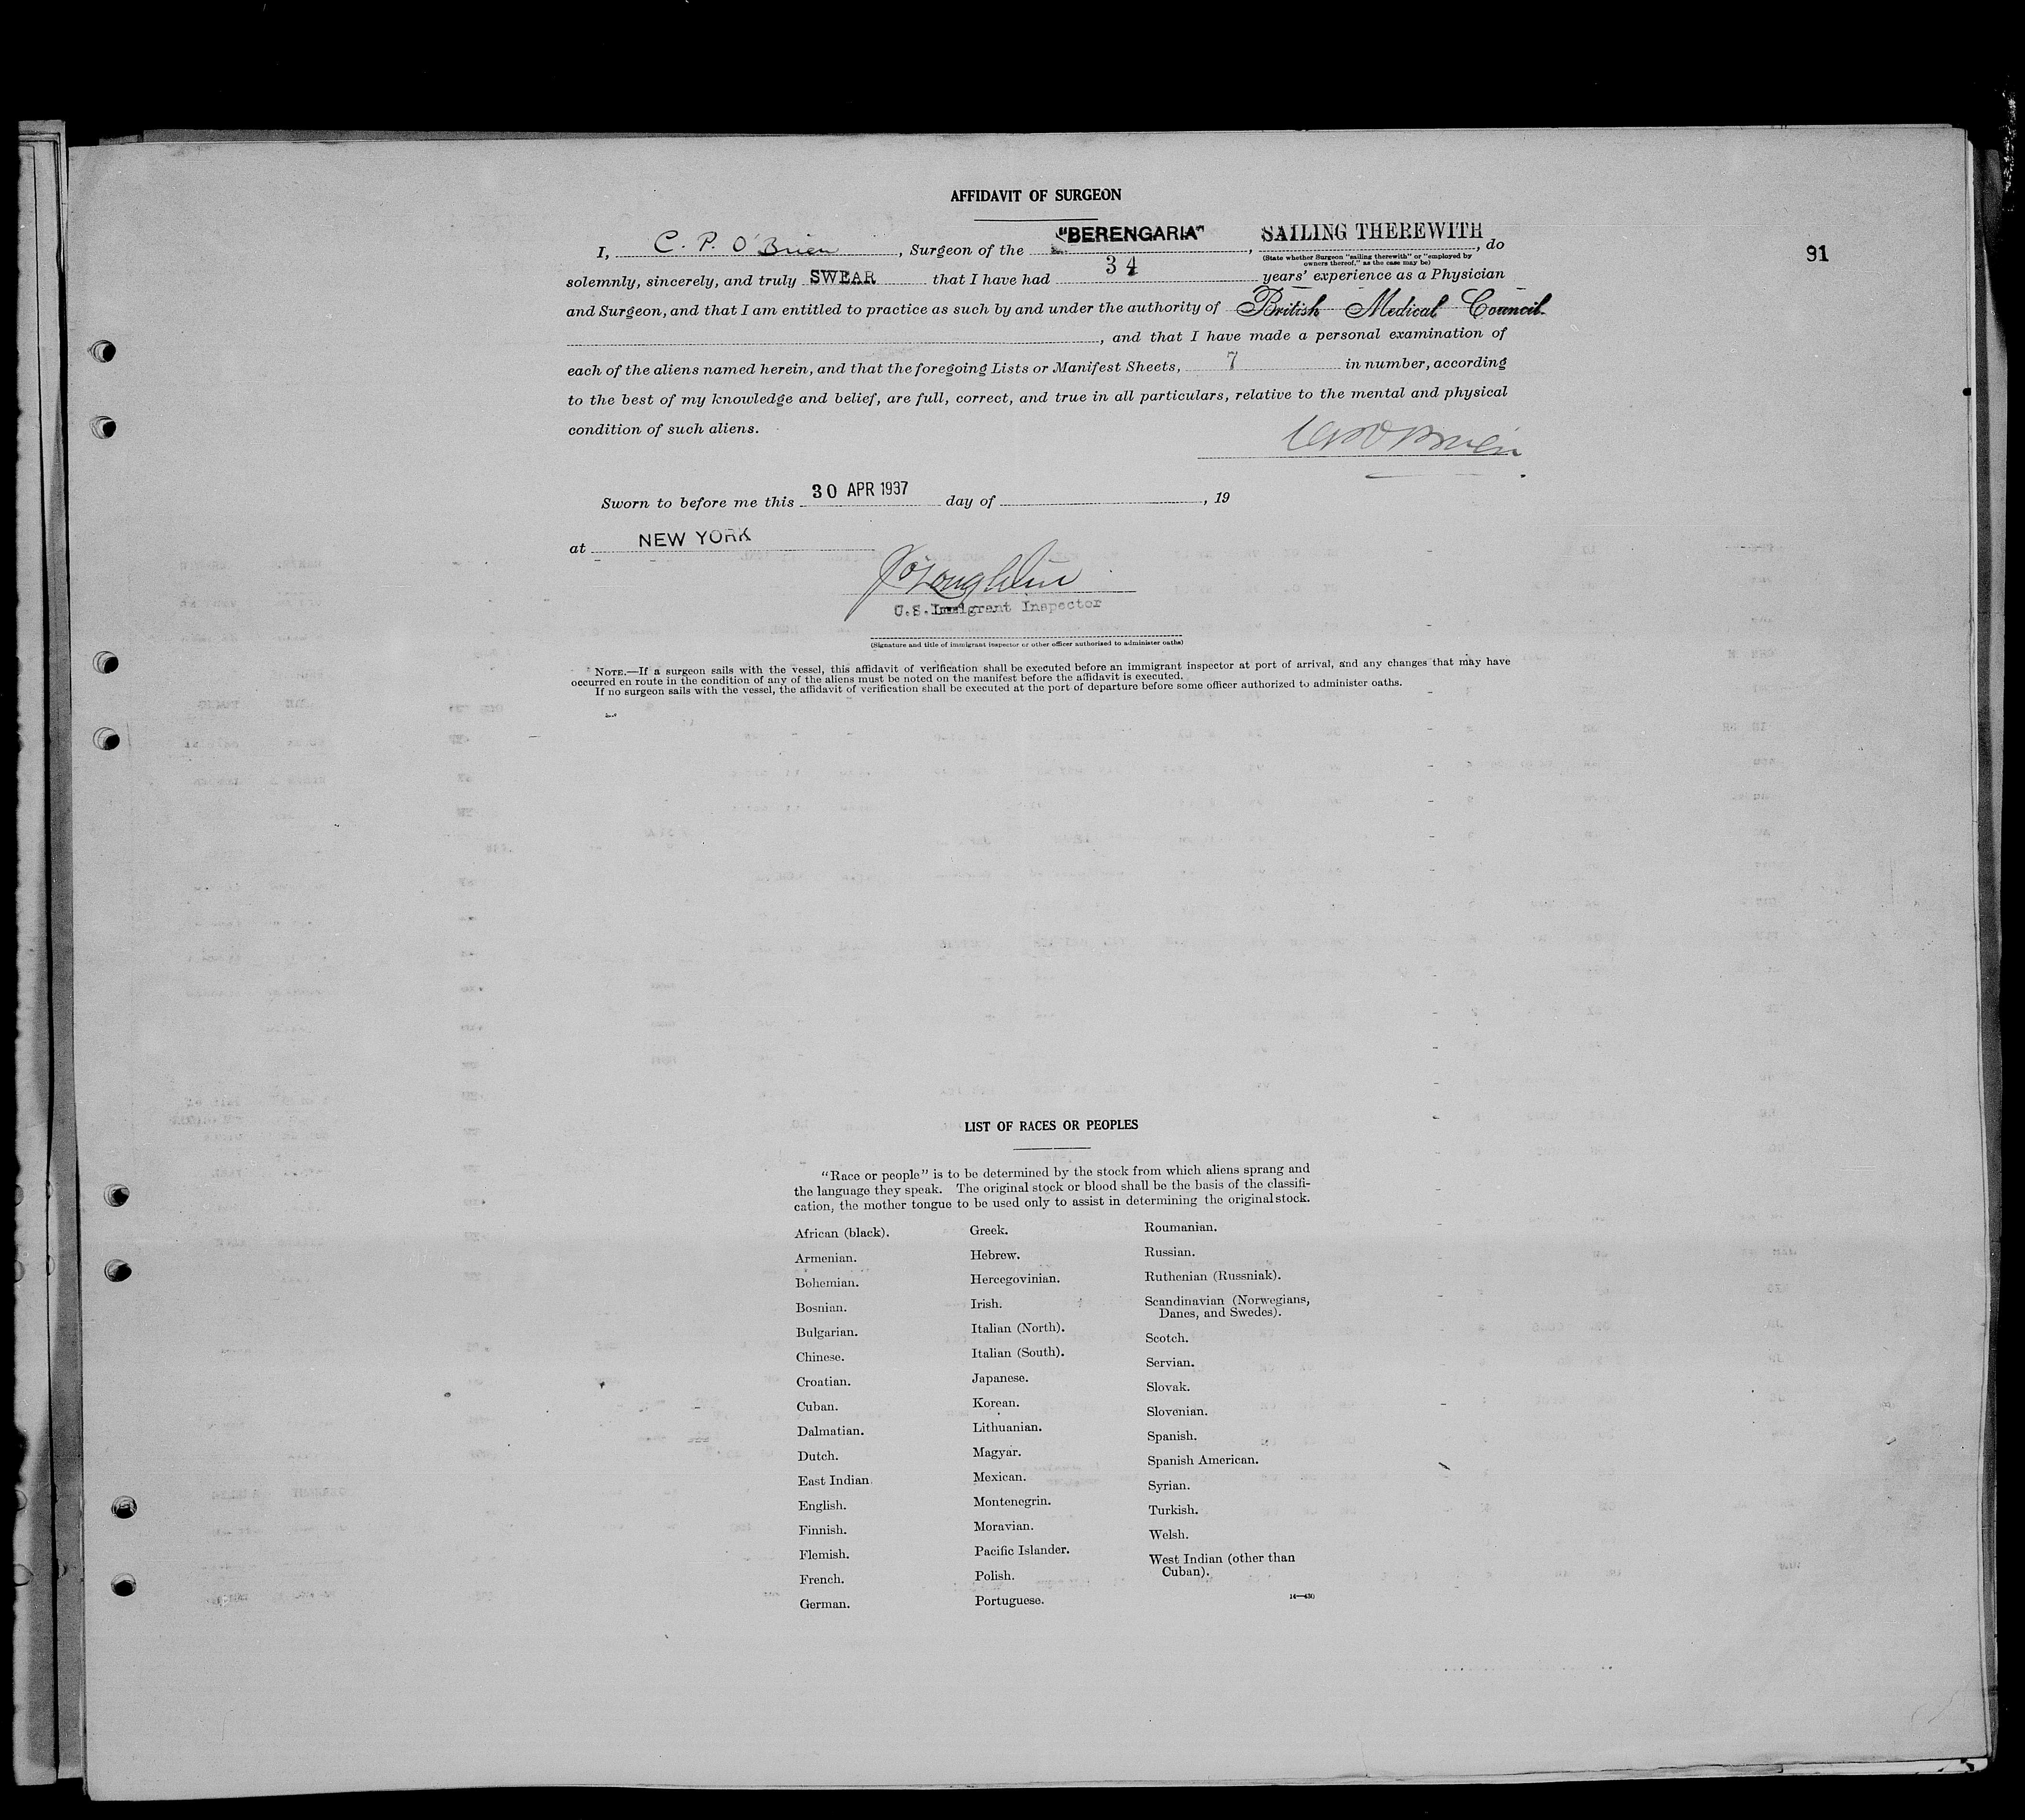 AFFIDAVIT OF SURGEON
91
I, C. P. O'Brien, Surgeon of the "BERENGARIA", SAILING THEREWITH, do
(State whether Surgeon "sailing therewith" or "employed by
owners thereof," as the case may be)
solemnly, sincerely, and truly SWEAR that I have had 34 years' experience as a Physician
and Surgeon, and that I am entitled to practice as such by and under the authority of British Medical Council
, and that I have made a personal examination of
each of the aliens named herein, and that the foregoing Lists or Manifest Sheets, 7 in number, according
to the best of my knowledge and belief, are full, correct, and true in all particulars, relative to the mental and physical
condition of such aliens.
CP O'Brien
Sworn to before me this 30 APR 1937 day of , 19
at NEW YORK
U.S. Immigrant Inspector
(Signature and title of immigrant inspector or other officer authorized to administer oaths)
NOTE.—If a surgeon sails with the vessel, this affidavit of verification shall be executed before an immigrant inspector at port of arrival, and any changes that may have
occurred en route in the condition of any of the aliens must be noted on the manifest before the affidavit is executed.
If no surgeon sails with the vessel, the affidavit of verification shall be executed at the port of departure before some officer authorized to administer oaths.
LIST OF RACES OR PEOPLES
"Race or people" is to be determined by the stock from which aliens sprang and
the language they speak. The original stock or blood shall be the basis of the classifi-
cation, the mother tongue to be used only to assist in determining the original stock.
African (black).
Armenian.
Bohemian.
Bosnian.
Bulgarian.
Chinese.
Croatian.
Cuban.
Dalmatian.
Dutch.
East Indian.
English.
Finnish.
Flemish.
French.
German.
Greek.
Hebrew.
Hercegovinian.
Irish.
Italian (North).
Italian (South).
Japanese.
Korean.
Lithuanian.
Magyar.
Mexican.
Montenegrin.
Moravian.
Pacific Islander.
Polish.
Portuguese.
Roumanian.
Russian.
Ruthenian (Russniak).
Scandinavian (Norwegians,
Danes, and Swedes).
Scotch.
Servian.
Slovak.
Slovenian.
Spanish.
Spanish American.
Syrian.
Turkish.
Welsh.
West Indian (other than
Cuban).
14—430